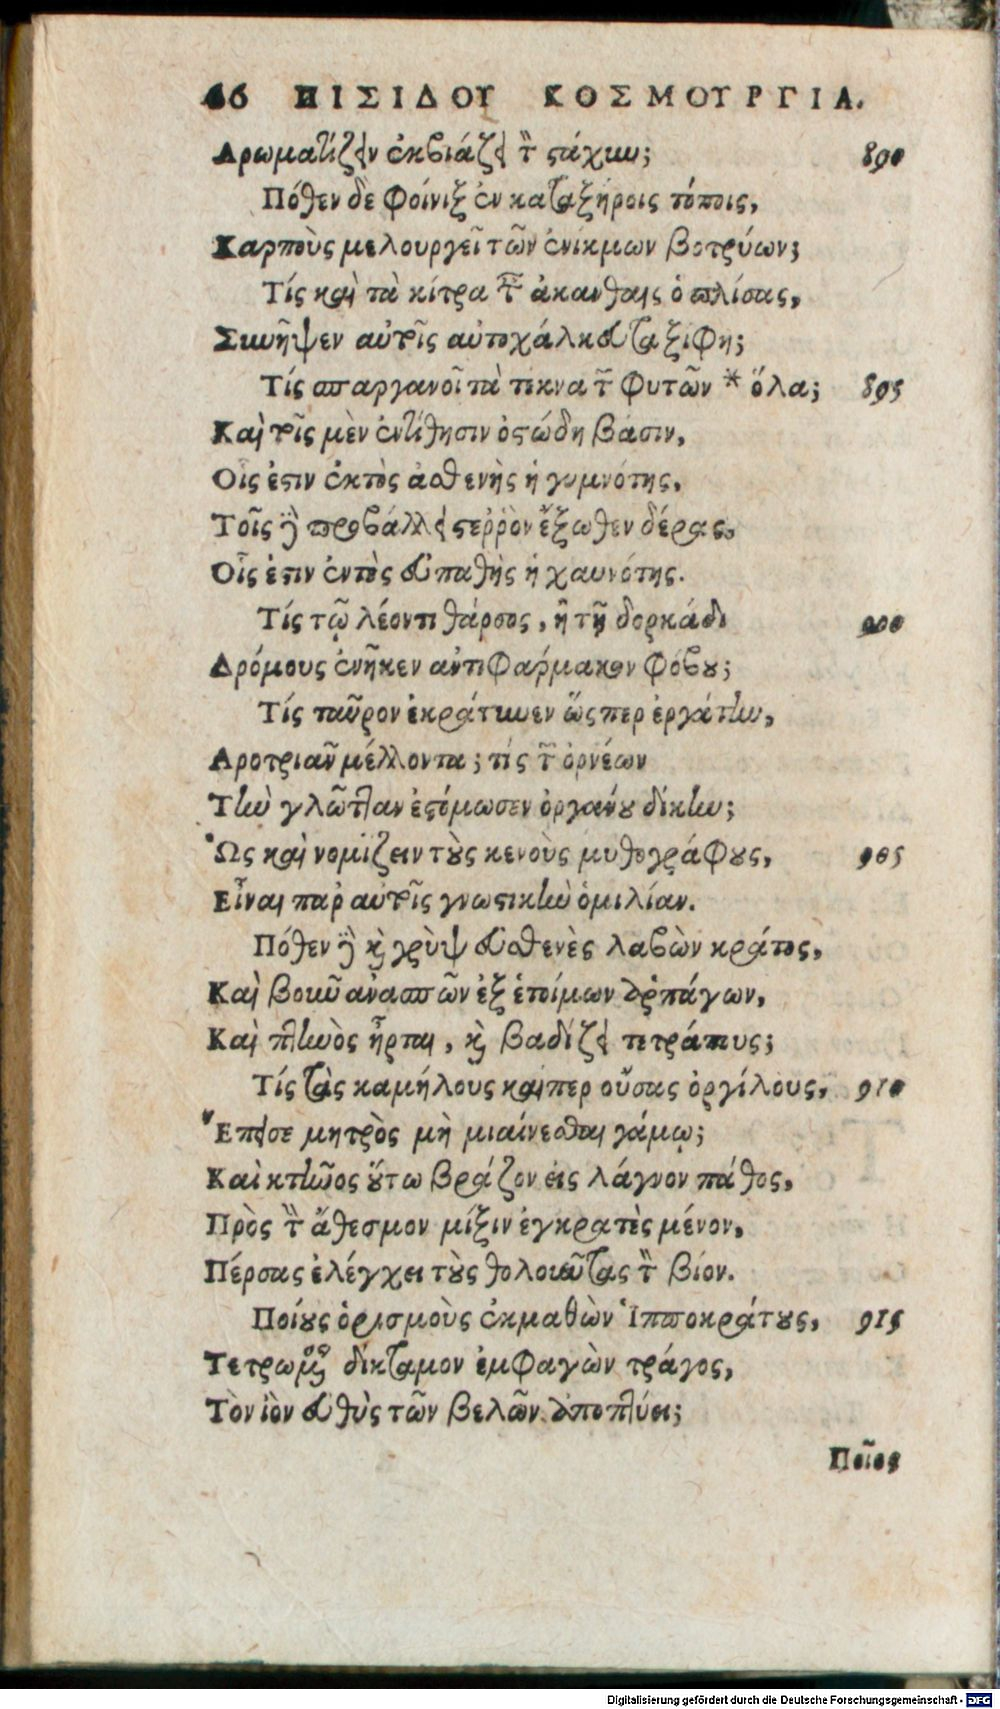 66 ΠΙΣΙΔΟΥ ΚΟΣΜΟΥΡΓΙΑ.
Αρωματίζειν ἐκβιάζει τὸν στάχυν; 890
Πόθεν δὲ φοίνιξ ἐν καταξήροις τόποις,
Καρποὺς μελουργεῖ τῶν ἐνίκμων βοτρύων;
Τίς καὶ τὰ κίτρα τῶν ἀκανθαις ὁπλίσας,
Συνῆψεν αὐτοῖς αὐτοχάλκευτα ξίφη;
Τίς σπαργανοῖ τὰ τέκνα τῶν φυτῶν * ὅλα; 895
Καὶ τοῖς μὲν ἐντίθησιν ὀστώδη βάσιν,
Οἷς ἐστιν ἐκτὸς ἀσθενὴς ἡ γυμνότης,
Τοῖς δὲ προβάλλει στερρὸν ἔξωθεν δέρας,
Οἷς ἐστιν ἐντὸς εὐπαθὴς ἡ χαυνότης.
Τίς τῷ λέοντι θάρσος, ἢ τῇ δορκάδι 900
Δρόμους ἐνῆκεν αντιφαρμακον φόβου;
Τίς ταῦρον ἐκράτυνεν ὥσπερ ἐργάτην,
Αροτριᾶν μέλλοντα; τίς τῶν ὀρνέων
Τὴν γλῶτταν ἐστόμωσεν ὀργάνου δίκην;
Ὡς καὶ νομίζειν τοὺς κενοὺς μυθογράφους, 905
Εἶναι παρ αὐτοῖς γνωστικὴν ὁμιλίαν.
Πόθεν δὲ καὶ γρὺψ εὐσθενὲς λαβὼν κράτος,
Καὶ βοῦν ἀνασπῶν ἐξ ἑτοίμων ἁρπάγων,
Καὶ πτηνὸς ἦρται, καὶ βαδίζει τετράπους;
Τίς τὰς καμήλους καίπερ οὔσας ὀργίλους, 910
Ἔπεισε μητρὸς μὴ μιαίνεσθαι γάμῳ;
Καὶ κτῆνος οὕτω βράζον εἰς λάγνον πάθος,
Πρὸς τὴν ἄθεσμον μίξιν ἐγκρατὲς μένον,
Πέρσας ἐλέγχει τοὺς θολοῦντας τὸν βίον.
Ποίους ὁρισμοὺς ἐκμαθὼν Ἱπποκράτους, 915
Τετρωμένος δίκταμον ἐμφαγὼν τράγος,
Τὸν ἰὸν εὐθὺς τῶν βελῶν ἀποπτύει;
Ποῖος
Digitalisierung gefördert durch die Deutsche Forschungsgemeinschaft - DFG